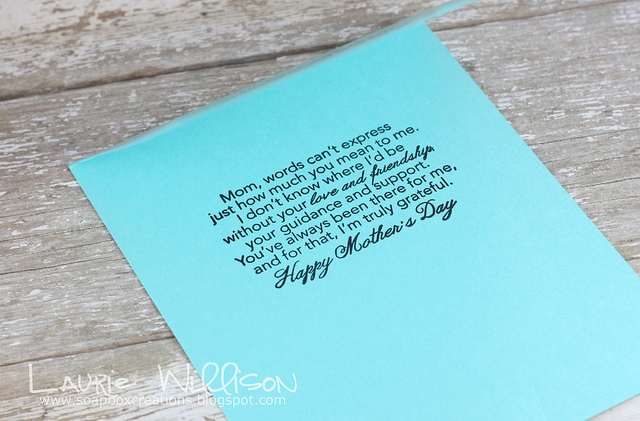 Mom, words can't express
just how much you mean to me.
I don't know where I'd be
without your love and friendship,
your guidance and support.
You've always been there for me,
and for that, I'm truly grateful.
Happy Mother's Day
Laurie Willison
www.soapboxcreations.blogspot.com